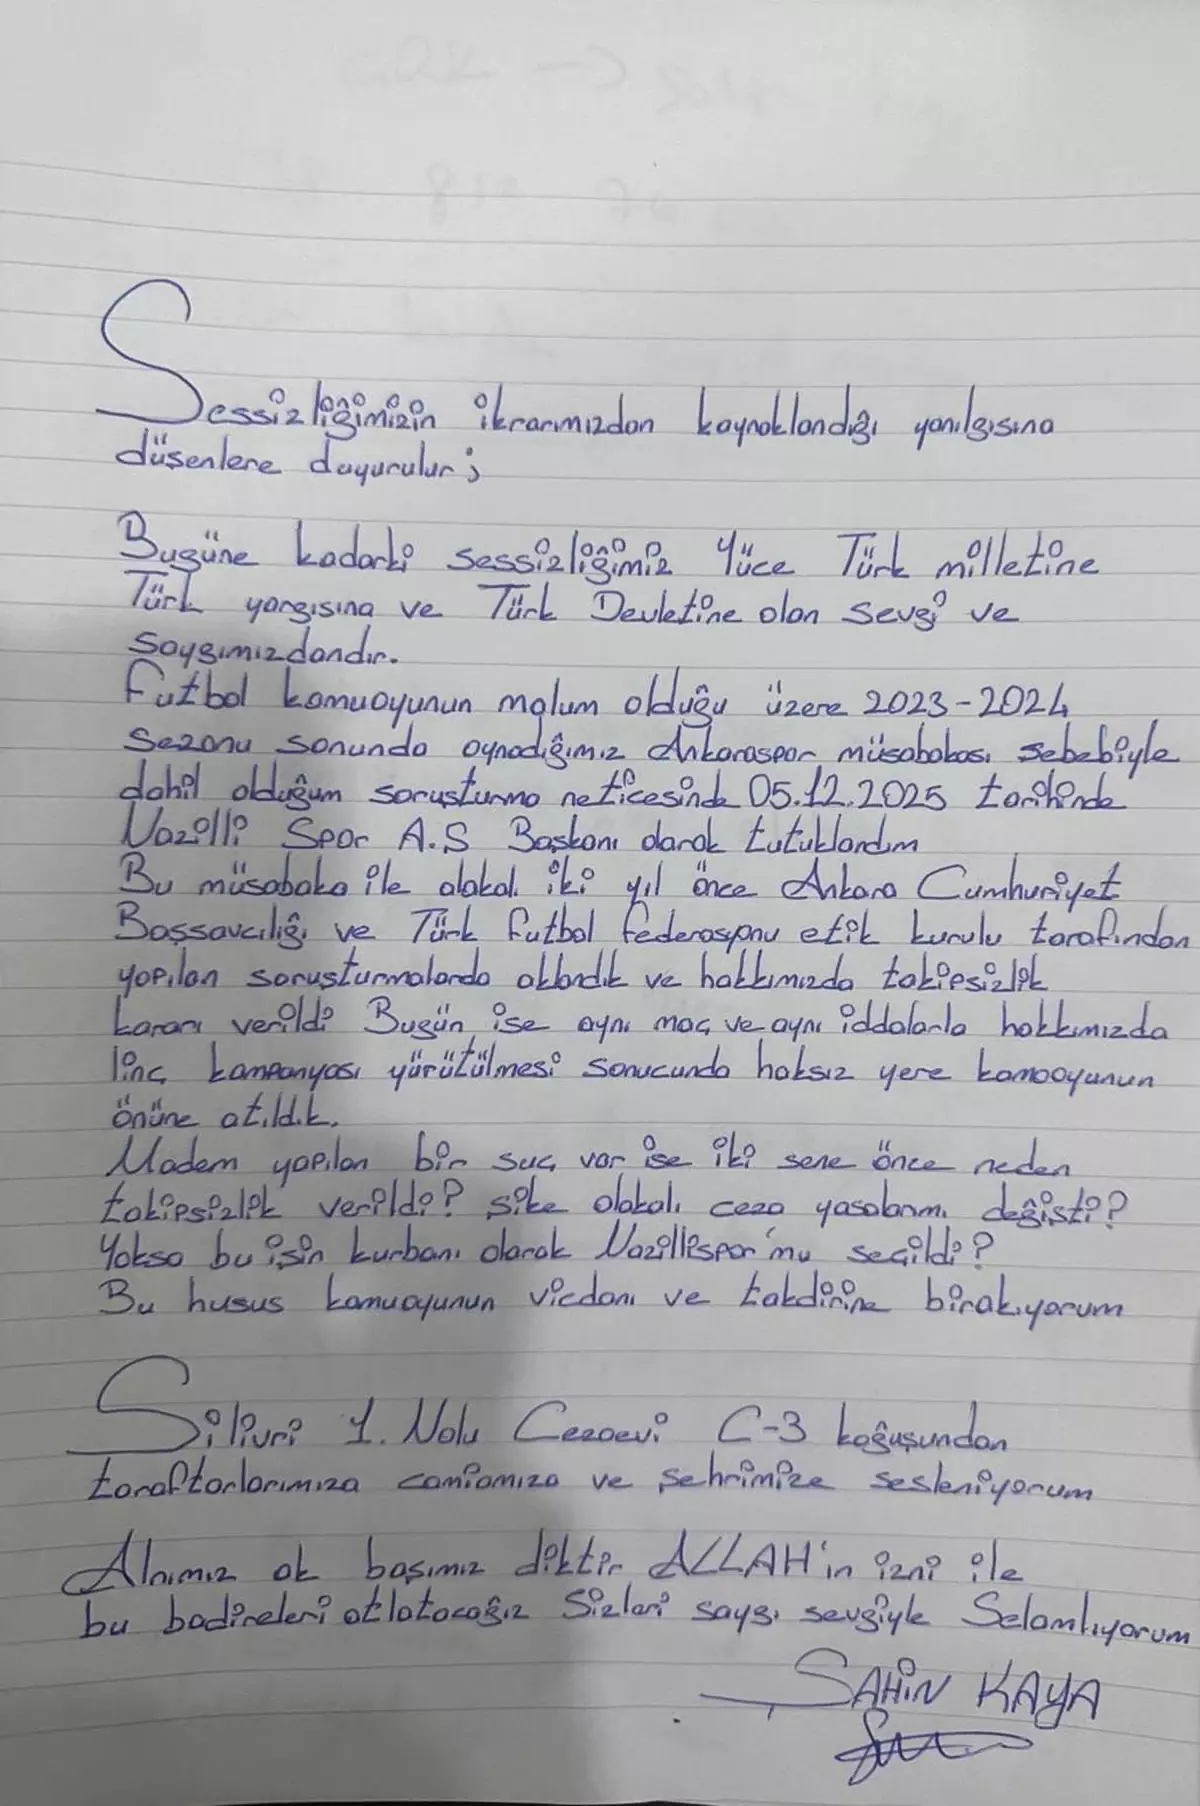 Sessizliğimizin ikrarımızdan kaynaklandığı yanılgısına
düşenlere duyurulur;
Bugüne kadarki sessizliğimiz Yüce Türk milletine
Türk yargısına ve Türk Devletine olan sevgi ve
saygımızdandır.
Futbol kamuoyunun malum olduğu üzere 2023-2024
sezonu sonunda oynadığımız Ankaraspor müsabakası sebebiyle
dahil olduğum soruşturma neticesinde 05.12.2025 tarihinde
Nazilli Spor A.Ş Başkanı olarak tutuklandım
Bu müsabaka ile alakalı iki yıl önce Ankara Cumhuriyet
Başsavcılığı ve Türk futbol federasyonu etik kurulu tarafından
yapılan soruşturmalarda aklandık ve hakkımızda takipsizlik
kararı verildi Bugün ise aynı maç ve aynı iddalarla hakkımızda
linç kampanyası yürütülmesi sonucunda haksız yere kamooyunun
önüne atıldık.
Madem yapılan bir suç var ise iki sene önce neden
takipsizlik verildi? şike alakalı ceza yasalarımı değişti?
Yoksa bu işin kurbanı olarak Nazillispor'mu seçildi?
Bu husus kamuoyunun vicdanı ve takdirine birakıyorum
Silivri 1. Nolu Cezaevi C-3 koğuşundan
taraftarlarımıza camiamıza ve şehrimize sesleniyorum
Alnımız ak başımız diktir ALLAH'ın izni ile
bu badireleri atlatacağız Sizleri saygı sevgiyle Selamlıyorum
ŞAHİN KAYA